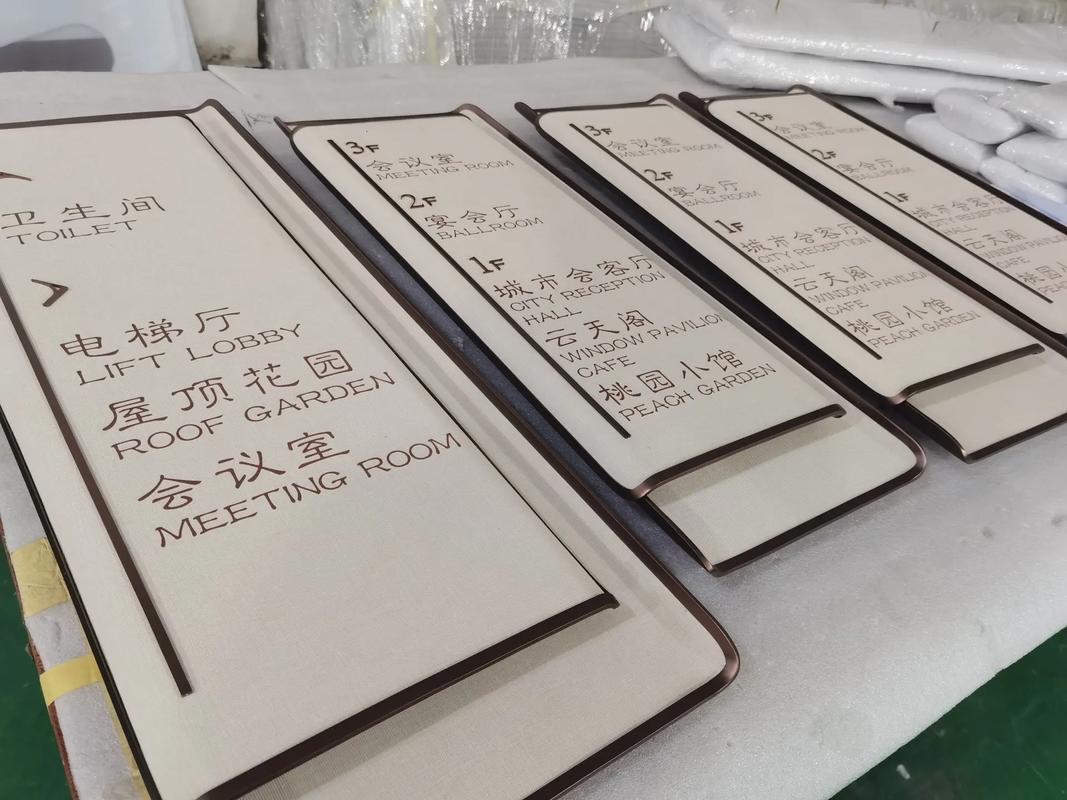 卫生间
TOILET
电梯厅
LIFT LOBBY
屋顶花园
ROOF GARDEN
会议室
MEETING ROOM
3F
会议室
MEETING ROOM
2F
宴会厅
BALLROOM
1F
城市会客厅
CITY RECEPTION
HALL
云天阁
WINDOW PAVILION
CAFE
桃园小馆
PEACH GARDEN
3F
会议室
MEETING ROOM
2F
宴会厅
BALLROOM
1F
城市会客厅
CITY RECEPTION
HALL
云天阁
WINDOW PAVILION
CAFE
桃园小馆
PEACH GARDEN
3F
会议室
MEETING ROOM
2F
宴会厅
BALLROOM
1F
城市会客厅
CITY RECEPTION
HALL
云天阁
WINDOW PAVILION
CAFE
桃园